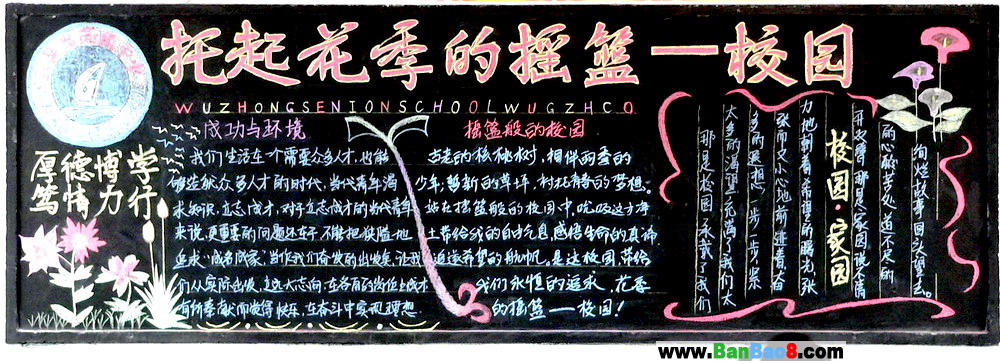 托起花季的摇篮—校园
WUZHONGSENIONSCHOOLWUGZHCO
厚德博学
笃情力行
成功与环境
我们生活在一个需要众多人才,也能
够造就众多人才的时代,当代青年渴
求知识,立志成才,对于立志成才的当代青年
来说,更重要的问题还在于,不能把狭隘地
追求"成名成家"当作我们奋发的出发点,让我
们从实际出发,立大志向,在各自的岗位上成才
摇篮般的校园
古老的核桃树,相伴而香的
少年;崭新的草坪,衬托青春的梦想。
站在摇篮般的校园中,吃吸这方海
土带给我的自由气息,感悟生命的真谛
追逐希望的船帆,是这校园,带给
我们永恒的追求,花季
的摇篮——校园!
校园·家园
绚烂故事回头望去。
的心酸苦处道不尽的
开双臂,那是家园说不离
力地刺着希望的曙光,张
张而又小心地前进着奋
多的遐想,一步一步紧
太多的渴望,充满了我们太
那是校园,承载了我们
www.BanBao8.com